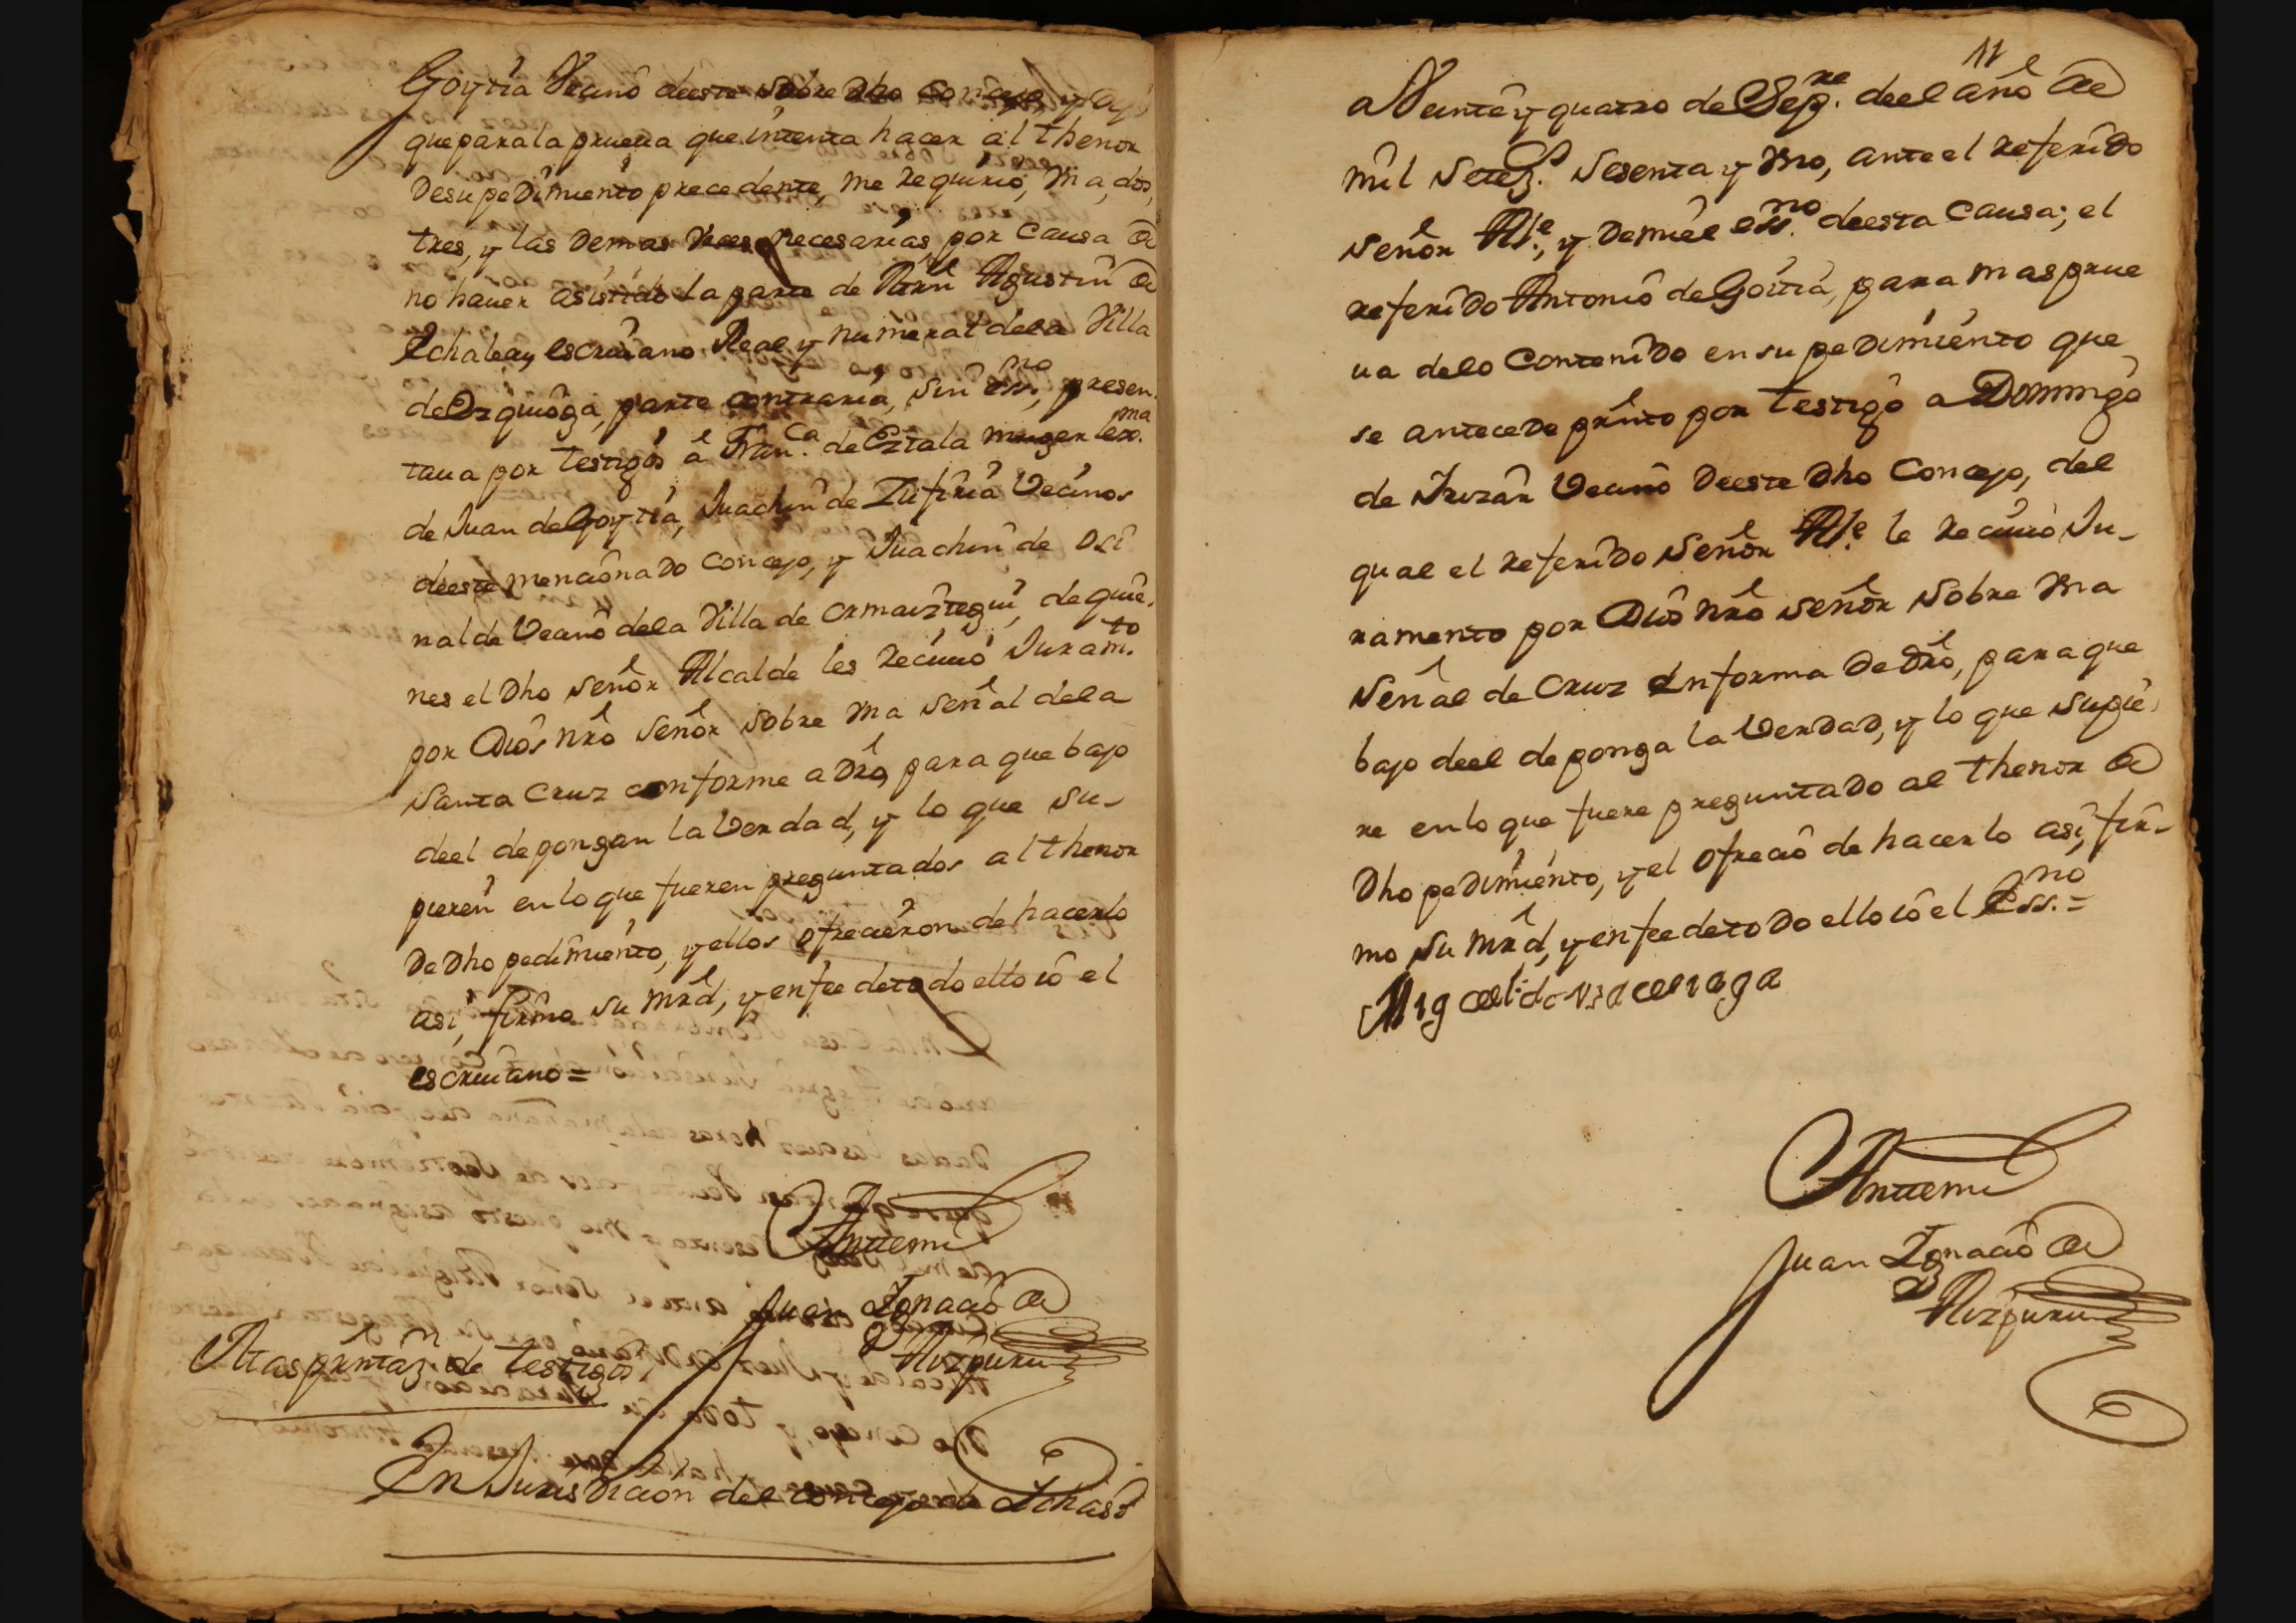 Goytia Vecino deeste sobre dho Concejo, y Dijo
que para la prueua que intenta hacer al thenor
De su peDimiento precedente, me requirio, vna, dos,
tres, y las Demas Veces necesarias, por causa de
no hauer asistido la parte de Agustin de
Ichalequ, escriuano Real y numeral de la Villa
de Vrquioga, parte contraria, sin ess.no, presen-
taua por testigos â Fran.ca de Eztala muger lex.ma
de Juan de Goytia, Juachin de Zufiria Vecinos
deeste mencionaDo Concejo, y Juachin de Osi
nalde Vecino de la Villa de Ormaiztegui, de quie-
nes el Dho Señor Alcalde les reciuio Juram.to
por Dios nrô Señor sobre vna Señal de la
Santa Cruz conforme a Drô, para que bajo
deel depongan la Verdad, y lo que su-
pieren en lo que fueren preguntados al thenor
De Dho pedimiento, y ellos ofrecieron de hacerlo
asi, firmo su mrd, y en fee de todo ello io el
escriuano =
Ante mi
Juan Ignacio de
Aizpuru
Mas prntaz.n de testigos
En Jurisdicion del concejo de Ichaso
11
a Veinte y quatro de Sep.re deel año de
mil Setez.s Sesenta y vno, ante el referiDo
Señor Al.e, y De mi el ess.no deesta Causa; el
referiDo Antonio de Goitia, para mas prue
ua de lo ConteniDo en su peDimiento que
se antecede prnto por testigo a Domingo
de Irizar Vecino Deeste Dho Concejo, del
qual el referiDo Señor Al.e le reciuio Ju-
ramento por Dios nrô Señor Sobre vna
Señal de Cruz en forma De drô, para que
bajo deel deponga la VerDaD, y lo que Supie-
re en lo que fuere preguntaDo al thenor de
Dho peDimiento, y el ofrecio de hacerlo asi, fir-
mo Su mrd, y en fee de toDo ello io el Ess.no =
Migael de
Ante mi
Juan Ignacio de
Aizpuru